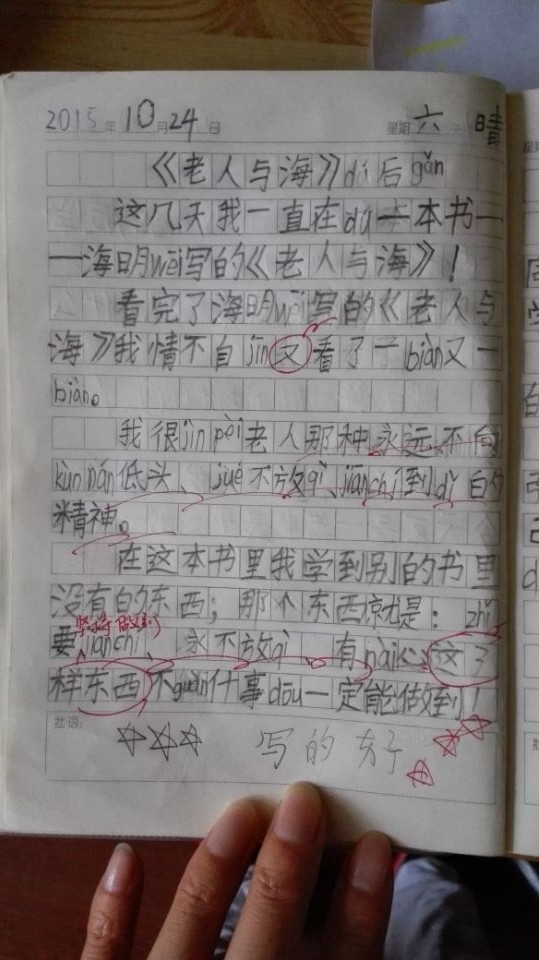 2015年10月24日 星期六 天气晴
《老人与海》dú后gǎn
这几天我一直在dú一本书—
—海明wēi写的《老人与海》!
看完了海明wēi写的《老人与
海》我情不自jīn又看了一biàn又一
biàn。
我很jìn pèi老人那种永远不向
kùn nán低头、jué不放qì、jiānchí到dǐ的
精神。
在这本书里我学到别的书里
没有的东西;那个东西就是:zhǐ
坚持做到
要jiānchí、永不放qì、有nàixīn这了
样东西不guǎn什事dōu一定能做到!
批语:
写的好